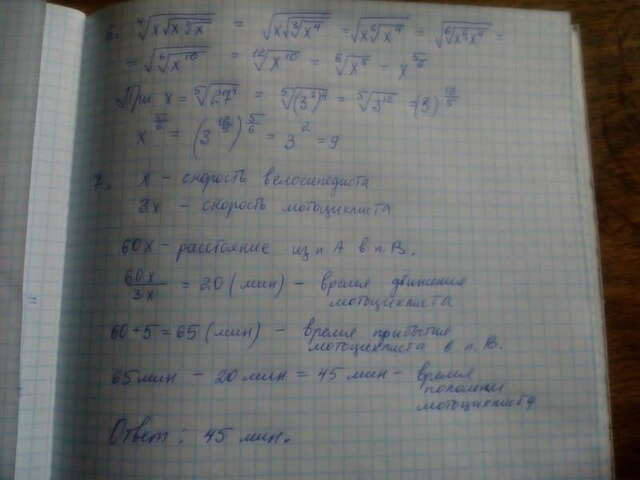 6. ⁴√(x√(x∛x)) = √(x√(∛x⁴)) = √(x⁶√x⁴) = √(⁶√(x⁶x⁴)) =
= √(⁶√x¹⁰) = ¹²√x¹⁰ = ⁶√x⁵ - x^(5/6)
При x = ⁵√27⁴ = ⁵√(3³)⁴ = ⁵√3¹² = (3)^(12/5)
x^(5/6) = (3^(12/5))^(5/6) = 3² = 9
7. x - скорость велосипедиста
3x - скорость мотоциклиста
60x - расстояние из п. А в п. В.
60x/3x = 20 (мин) - время движения
мотоциклиста
60+5 = 65 (мин) - время прибытия
мотоциклиста в п. В.
65 мин - 20 мин = 45 мин - время
поломки
мотоциклиста
Ответ: 45 мин.